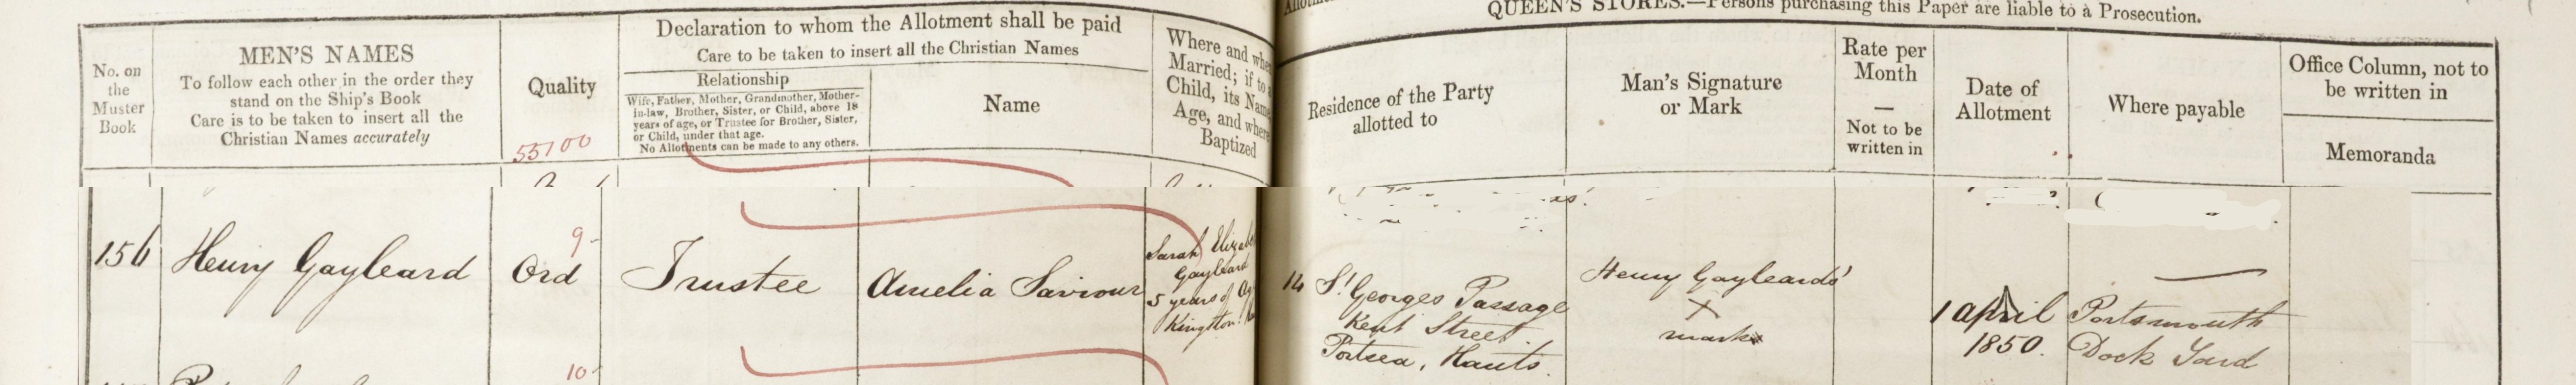 QUEEN'S STORES.—Persons purchasing this Paper are liable to a Prosecution.
No. on
the
Muster
Book
MEN'S NAMES
To follow each other in the order they
stand on the Ship's Book
Care is to be taken to insert all the
Christian Names accurately
Quality
55100
Declaration to whom the Allotment shall be paid
Care to be taken to insert all the Christian Names
Relationship
Wife, Father, Mother, Grandmother, Mother-
in-law, Brother, Sister, or Child, above 18
years of age, or Trustee for Brother, Sister,
or Child, under that age.
No Allotments can be made to any others.
Name
Where and when
Married; if to a
Child, its Name
Age, and where
Baptized
Residence of the Party
allotted to
Man's Signature
or Mark
Rate per
Month
—
Not to be
written in
Date of
Allotment
Where payable
Office Column, not to
be written in
Memoranda
156
Henry Gayleard
9-
Ord
Trustee
Amelia Saviour
Sarah
Gayleard
5 years of
Kingston
14 St Georges Passage
Kent Street
Portsea, Hants.
Henry Gayleards'
X
mark
1 april
1850.
Portsmouth
Dock Yard
10-